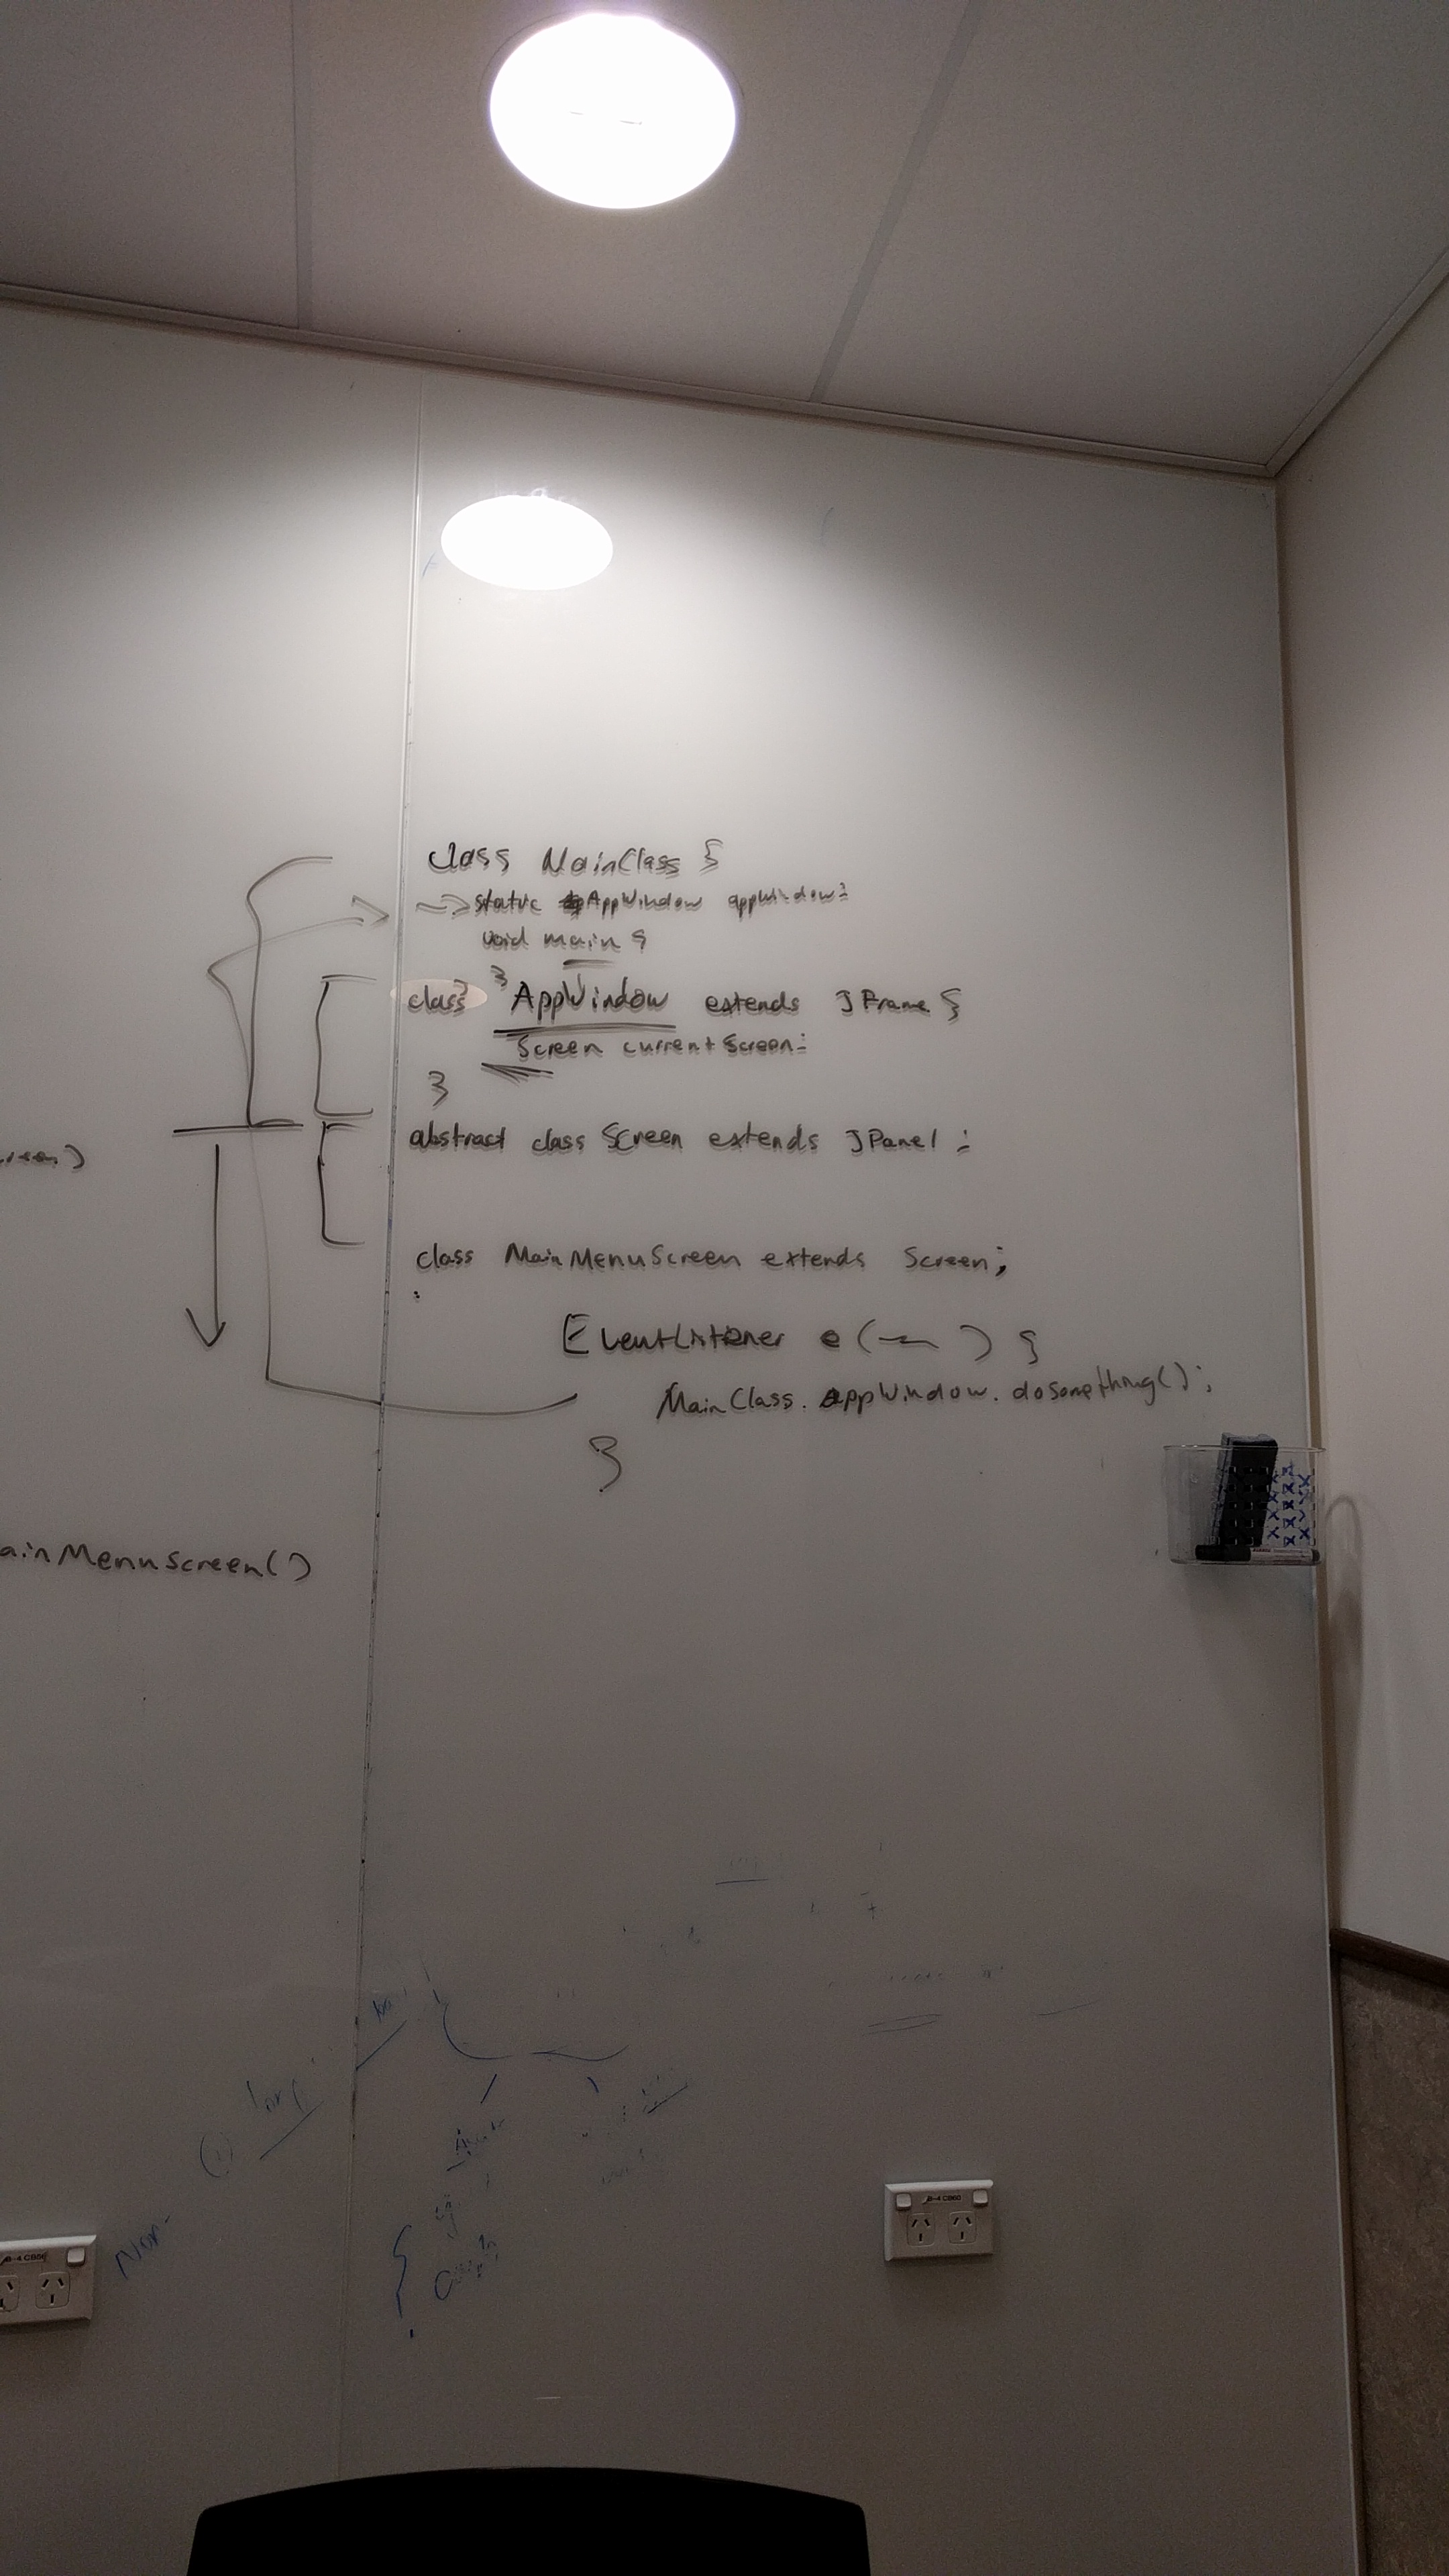 class MainClass {
static AppWindow appWindow;
void main {
}
}
class AppWindow extends JFrame {
Screen currentScreen;
}
abstract class Screen extends JPanel ;
class MainMenuScreen extends Screen;
EventListener e( ) {
MainClass.appWindow.doSomething();
}
ainMenuScreen()